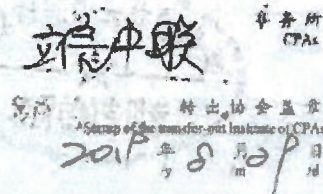 事务所
CPAs
立信中联
转出协会盖章
Stamp of the transfer-out Institute of CPAs
2019年8月29日
/y /m /d